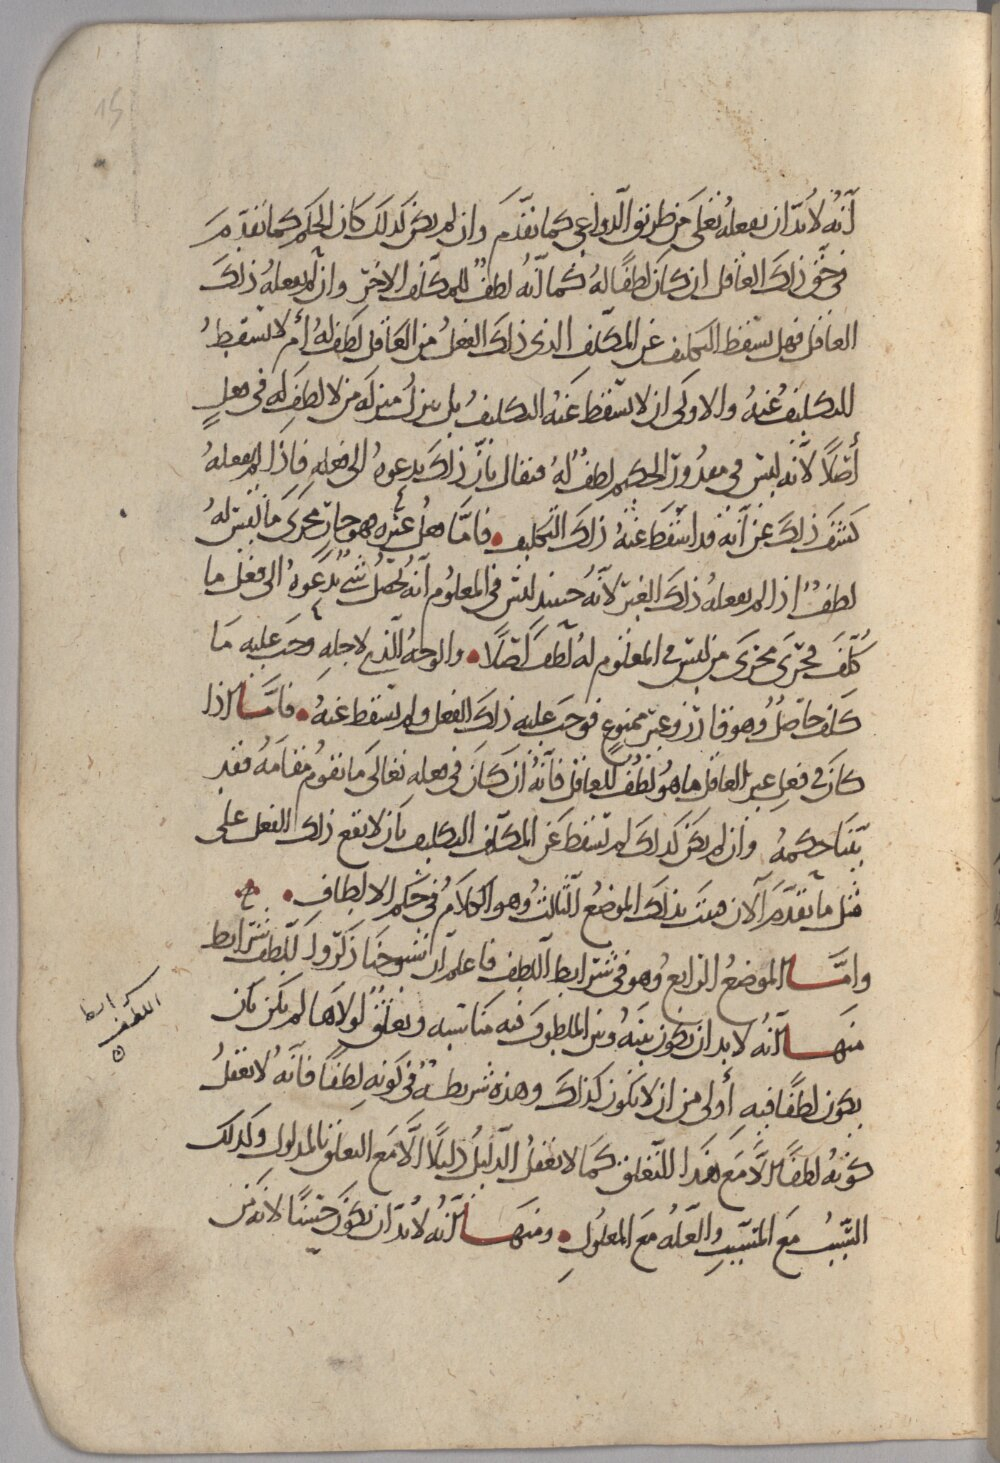 أنه لا بد ان يفعله تعالى من طريق الدواعي كما تقدم وان لم يكن كذلك كان الحكم كما تقدم
في حق ذلك العاقل ان كان لطفًا له كما أنه لطف للمكلف الاخر وان لم يفعله ذلك
العاقل فهل يسقط التكليف عن المكلف الذي ذلك الفعل من العاقل لطف له أم لا يسقط
التكليف عنه والاولى ان لا يسقط عنه التكليف بل ينزل منزلة من لا لطف له في فعل
أصلاً لأنه ليس في مقدور الحكيم لطف له فيقال بأن ذلك يدعوه الى فعله فاذا لم يفعله
كشف ذلك عن أنه قد اسقط عنه ذلك التكليف فاما هل غيره هو جار مجرى ما ليس له
لطف اذا لم يفعله ذلك الغير لأنه حينئذ ليس في المعلوم أنه يحصل شئ يدعوه الى فعل ما
كُلّف فجرى مجرى من ليس في المعلوم له لطف أصلًا والوجه الذي لاجله وجب عليه ما
كلف حاصل وهو قادر وغير ممنوع فوجب عليه ذلك الفعل ولم يسقط عنه فاما اذا
كان في فعل غير العاقل ما هو لطف للعاقل فانه ان كان في فعله تعالى ما يقوم مقامه فقد
بينا حكمه وان لم يكن كذلك لم يسقط عن المكلف التكليف بان لا يقع ذلك الفعل على
مثل ما تقدم الآن فثبت بذلك الموضع الثالث وهو الكلام في حكم الالطاف
واما الموضع الرابع وهو في شرايط اللطف فاعلم أن شيوخنا ذكروا للطف شرايط
منها أنه لا بد ان يكون بينه وبين الملطوف فيه مناسبه وتعلق لولاها لم يكن بان
يكون لطفًا فيه أولى من ان لا يكون كذلك وهذه شريطة في كونه لطفًا فانه لا يعقل
كونه لطفًا الا مع هذا التعلق كما لا يعقل الدليل دليلًا الا مع التعلق بالمدلول وكذلك
السبب مع المسبب والعله مع المعلول ومنها أنه لا بد ان يكون حسنًا لانه من
شرايط
اللطف